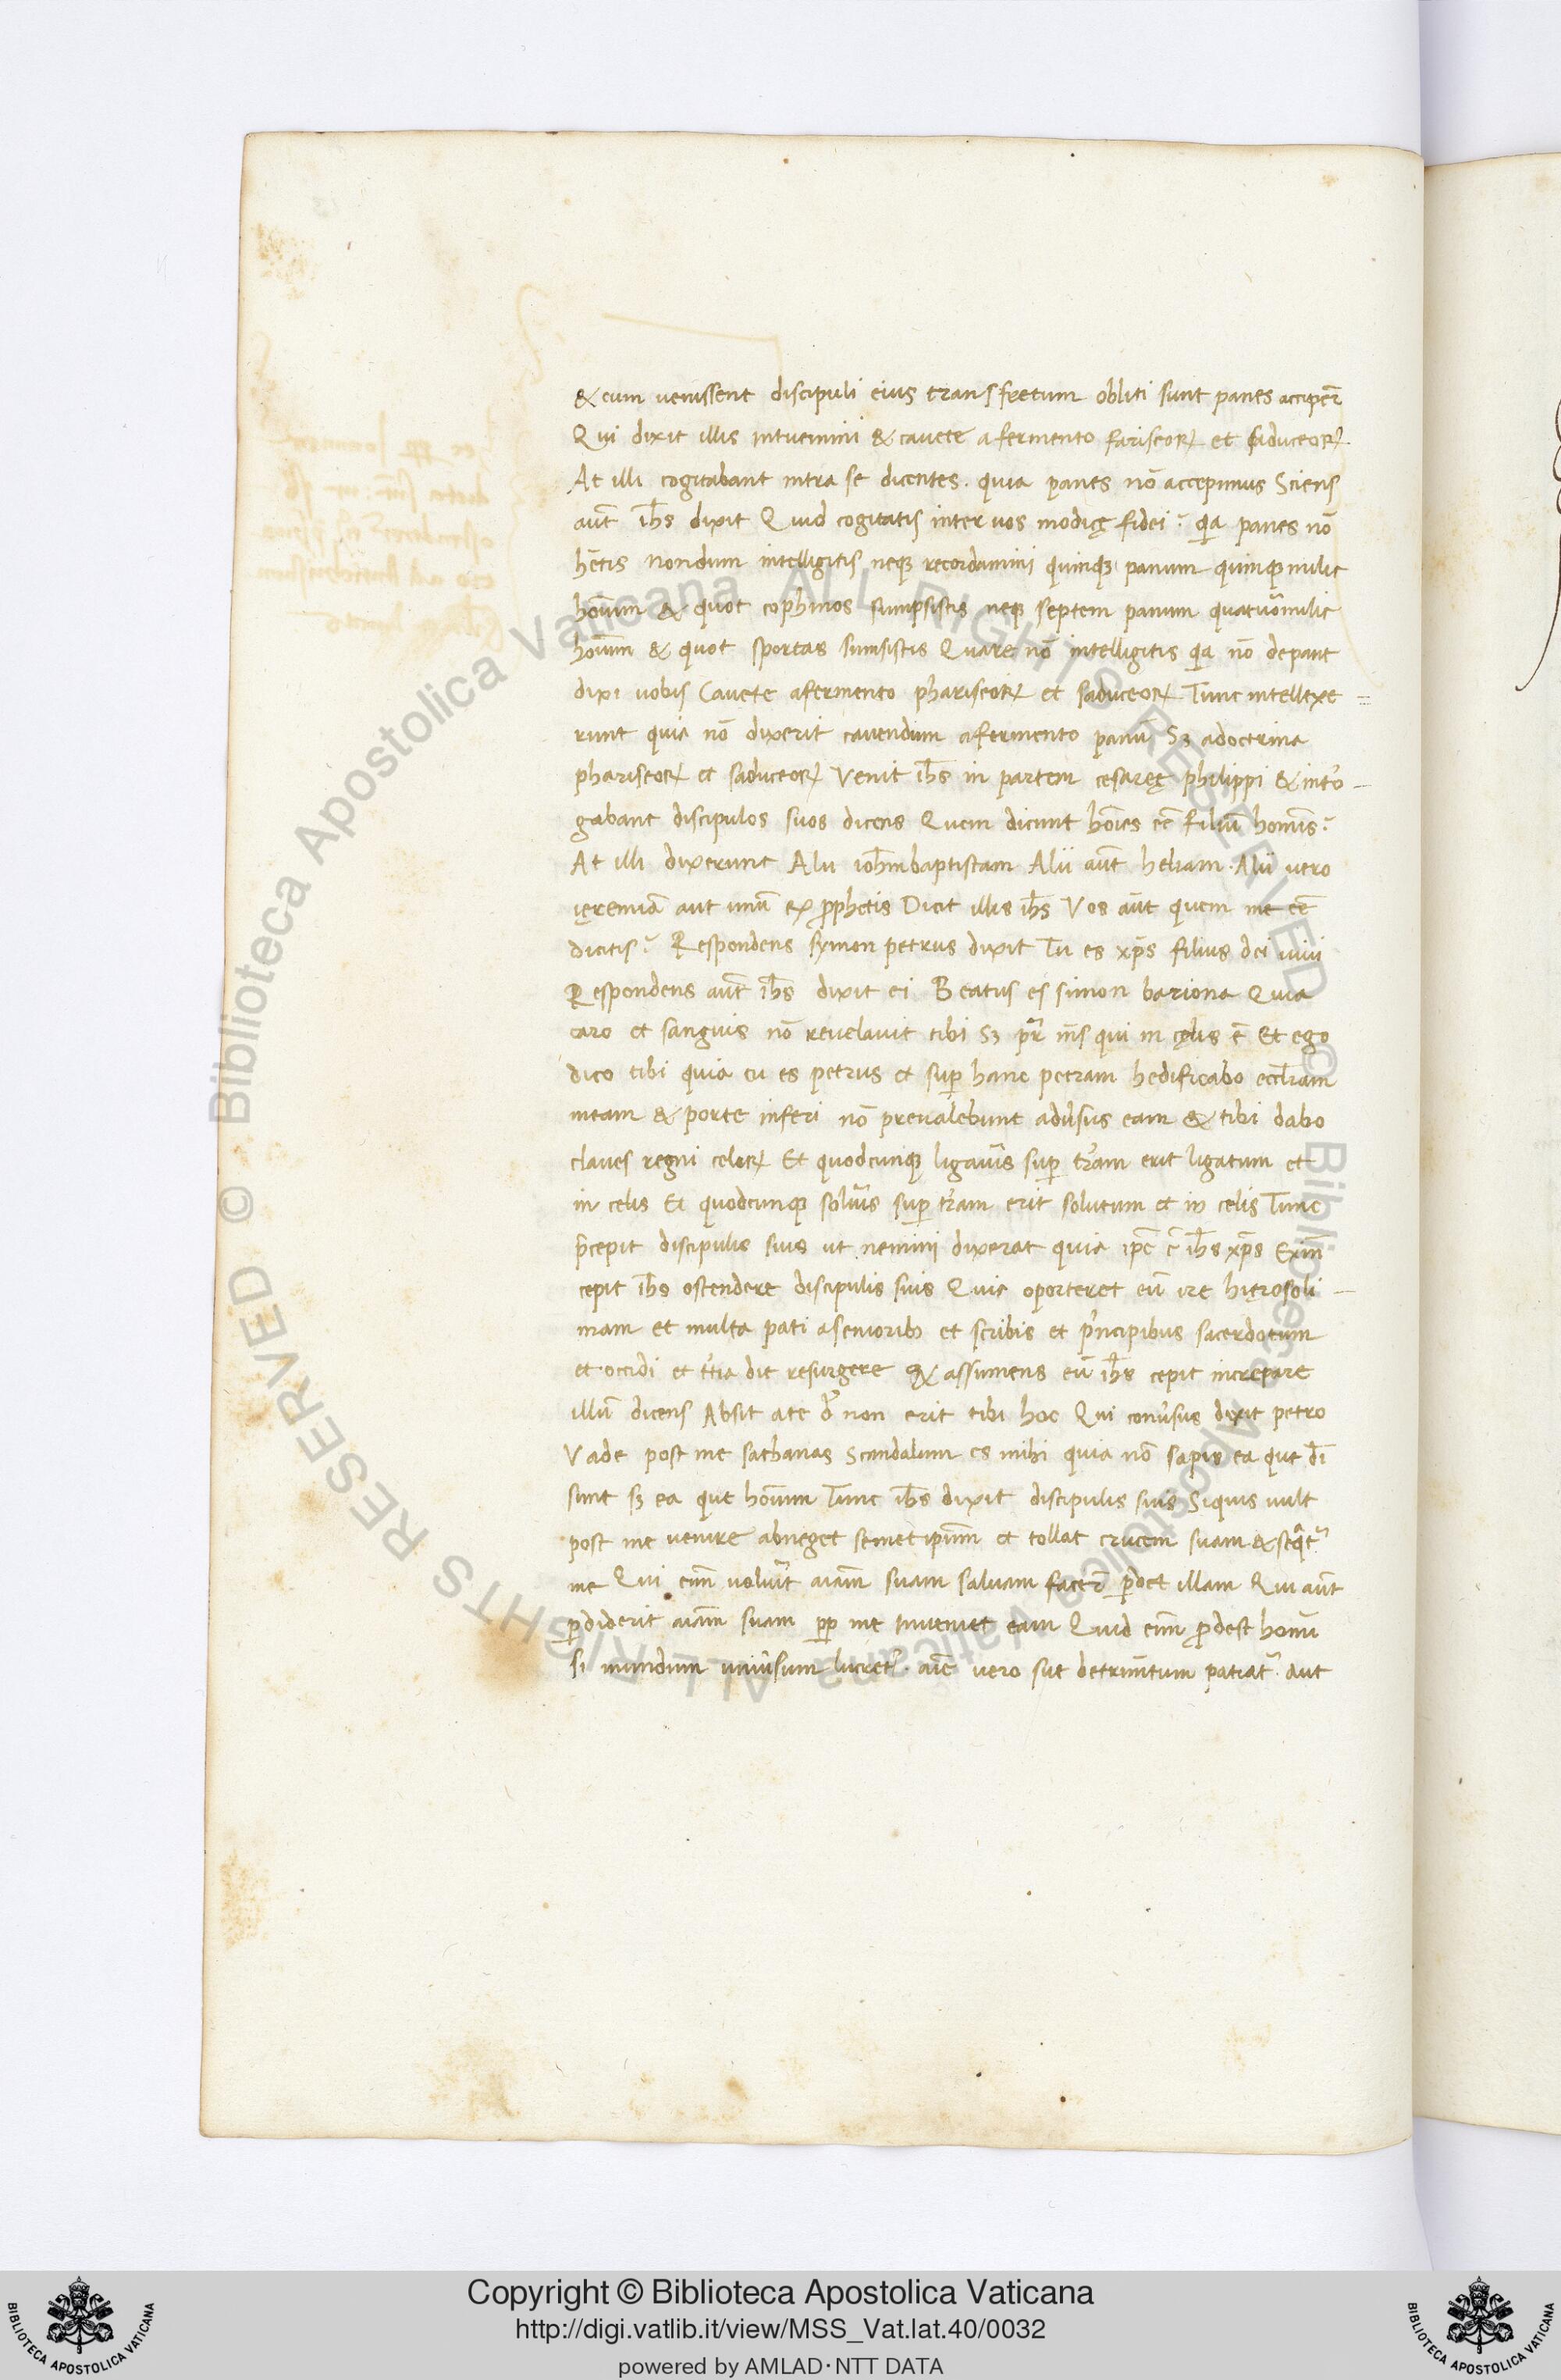 & cum venissent discipuli eius trans fretum obliti sunt panes acciper̄
Qui dixit illis intuemini & cavete a fermento fariseoꝝ et saduceoꝝ
At illi cogitabant intra se dicentes. quia panes nō accepimus Sciens
aut̄ ih̄s dixit Quid cogitatis inter vos modicę fidei? qa panes nō
hētis nondum intelligitis neqꝫ recordamini quinqꝫ panum quinqꝫ milie
hoīum & quot cophinos sumpsistis neqꝫ septem panum quatuor milie
hoīum & quot sportas sumsistis Quare nō intelligitis qa nō de pane
dixi vobis Cavete a fermento phariseoꝝ et saduceoꝝ Tunc intellexe
runt quia nō dixerit cavendum a fermento panū Sꝫ a doctrina
phariseoꝝ et saduceoꝝ Venit ih̄s in partem cesaręę philippi & int̄o
gabant discipulos suos dicens Quem dicunt hoīes eē filiū hominis?
At illi dixerunt Alii ioh̄m baptistam Alii aut̄ heliam. Alii vero
ięremiā aut unū ex ꝓphetis Dicit illis ih̄s Vos aūt quem me eē
dicitis? Respondens symon petrus dixit Tu es xp̄s filius dei vivi
Respondens aut̄ ih̄s dixit ei Beatus es simon bariona Quia
caro et sanguis nō revelavit tibi Sꝫ pr̄ ms̄ qui in cęlis ē Et ego
dico tibi quia tu es petrus et suꝑ hanc petram hedificabo eccl̄iam
meam & porte inferi nō prevalebunt adv̄sus eam & tibi dabo
claves regni celoꝝ Et quodcunqꝫ ligav̄is suꝑ tr̄am erit ligatum et
in celis Et quodcunqꝫ solv̄is suꝑ tr̄am erit solutum et in celis Tunc
p̄cepit discipulis suis ut nemini dixerat quia ip̄e ē ih̄s xp̄s Exin
cepit ih̄s ostendere discipulis suis Quia oporteret eū ire hięrosoli
mam et multa pati a seniorib; et scribis et pⁱncipibus sacerdotum
et occidi et t̄tia die resurgere & assumens eū ih̄s cepit increpare
illū dicens Absit a te d̄ non erit tibi hoc Qui conv̄sus dixit petro
Vade post me sathanas Scandalum es mihi quia nō sapis ea que dī
sunt sꝫ ea que hoīum Tunc ih̄s dixit discipulis suis Siquis vult
post me venire abneget semet ipsum et tollat crucem suam & seqat̄
me Qui enī volūit aīam suam salvam facer̄ ꝑdet illam Qui aūt
ꝑdiderit aīam suam ꝓp me inveniet eam Quid enī ꝓdest homī
si mundum univ̄sum lucret̄. aīe vero sue detrim̄tum patiat̄. Aut
Copyright © Biblioteca Apostolica Vaticana
http://digi.vatlib.it/view/MSS_Vat.lat.40/0032
powered by AMLAD·NTT DATA
BIBLIOTECA APOSTOLICA VATICANA
BIBLIOTECA APOSTOLICA VATICANA